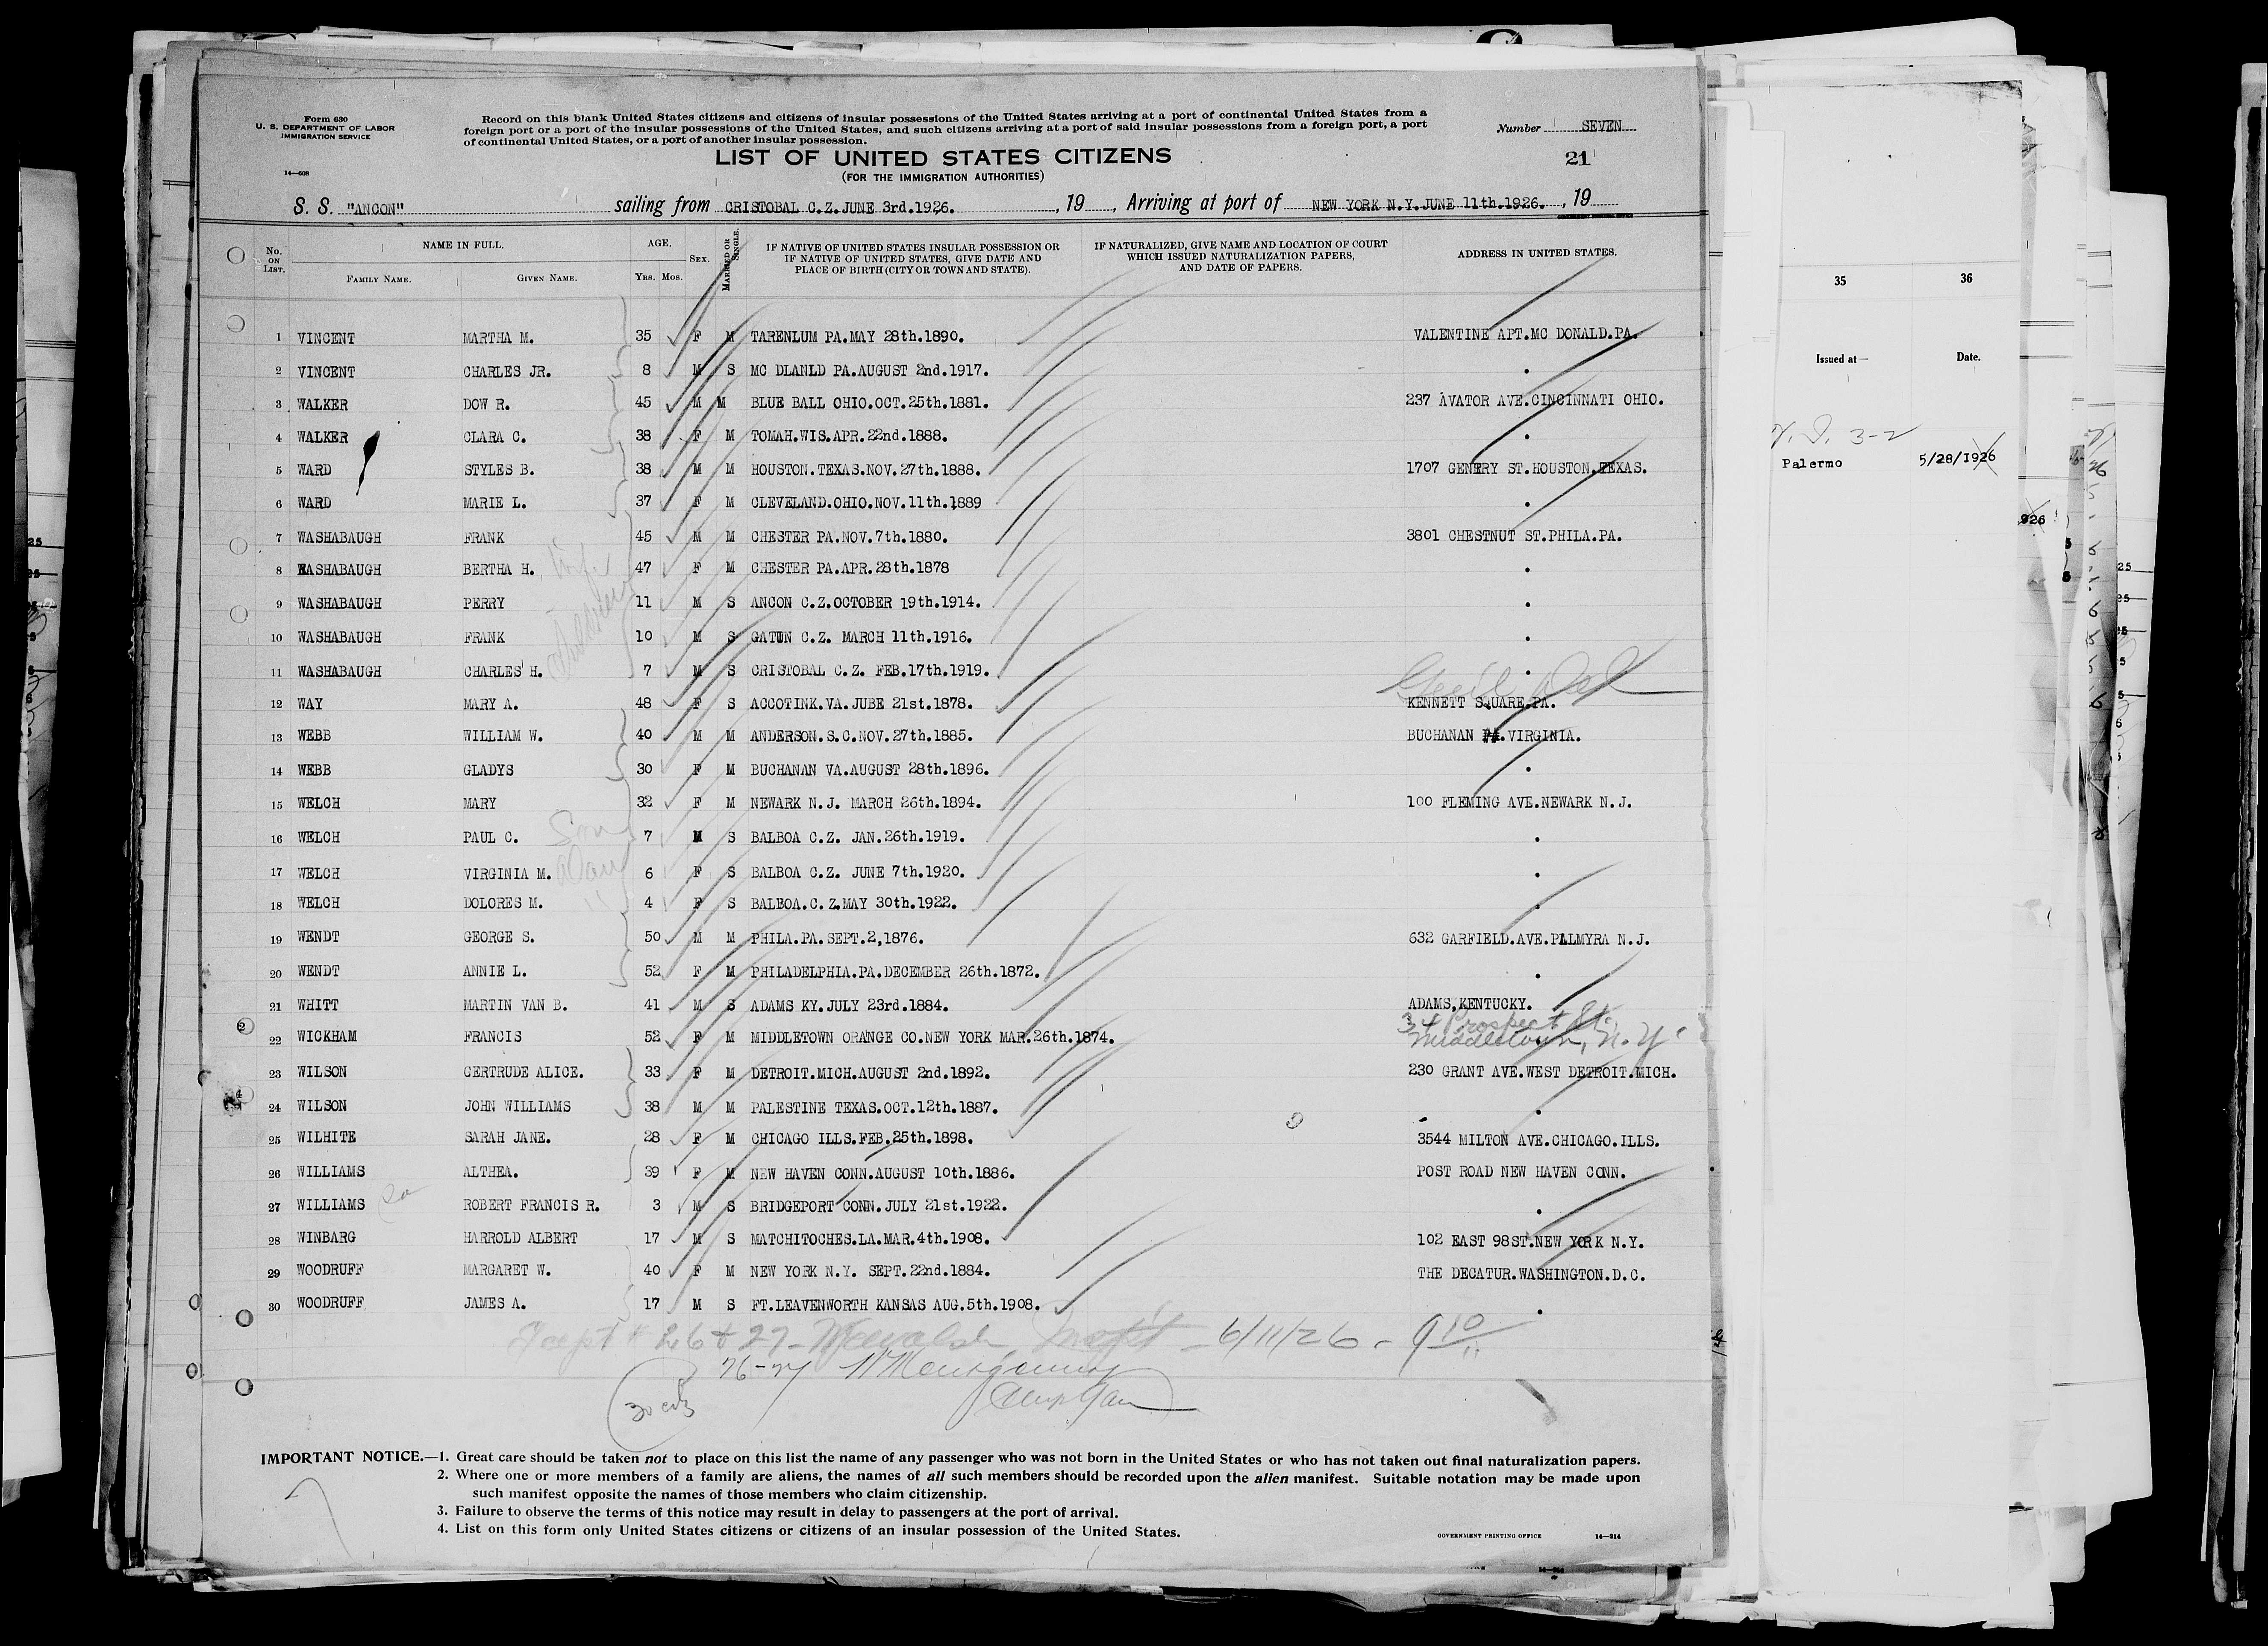 Form 630
U. S. DEPARTMENT OF LABOR
IMMIGRATION SERVICE
14—608
Record on this blank United States citizens and citizens of insular possessions of the United States arriving at a port of continental United States from a
foreign port or a port of the insular possessions of the United States, and such citizens arriving at a port of said insular possessions from a foreign port, a port
of continental United States, or a port of another insular possession.
Number SEVEN
LIST OF UNITED STATES CITIZENS
21
(FOR THE IMMIGRATION AUTHORITIES)
S. S. "ANCON" sailing from CRISTOBAL C.Z.JUNE 3rd.1926. , 19 , Arriving at port of NEW YORK N.Y.JUNE 11th.1926. , 19
No. ON LIST. NAME IN FULL. AGE. SEX. MARRIED OR SINGLE. IF NATIVE OF UNITED STATES INSULAR POSSESSION OR IF NATIVE OF UNITED STATES, GIVE DATE AND PLACE OF BIRTH (CITY OR TOWN AND STATE). IF NATURALIZED, GIVE NAME AND LOCATION OF COURT WHICH ISSUED NATURALIZATION PAPERS, AND DATE OF PAPERS. ADDRESS IN UNITED STATES.
FAMILY NAME. GIVEN NAME. YRS. MOS.
1 VINCENT MARTHA M. 35 F M TARENLUM PA.MAY 28th.1890. VALENTINE APT.MC DONALD.PA.
2 VINCENT CHARLES JR. 8 M S MC DLANLD PA.AUGUST 2nd.1917. .
3 WALKER DOW R. 45 M M BLUE BALL OHIO.OCT.25th.1881. 237 AVATOR AVE.CINCINNATI OHIO.
4 WALKER CLARA C. 38 F M TOMAH.WIS.APR.22nd.1888. .
5 WARD STYLES B. 38 M M HOUSTON.TEXAS.NOV.27th.1888. 1707 GENTRY ST.HOUSTON.TEXAS.
6 WARD MARIE L. 37 F M CLEVELAND.OHIO.NOV.11th.1889 .
7 WASHABAUGH FRANK 45 M M CHESTER PA.NOV.7th.1880. 3801 CHESTNUT ST.PHILA.PA.
8 WASHABAUGH BERTHA H. Wife 47 F M CHESTER PA.APR.28th.1878 .
9 WASHABAUGH PERRY 11 M S ANCON C.Z.OCTOBER 19th.1914. .
10 WASHABAUGH FRANK 10 M S GATUN C.Z. MARCH 11th.1916. .
11 WASHABAUGH CHARLES H. 7 M S CRISTOBAL C.Z. FEB.17th.1919. .
children
12 WAY MARY A. 48 F S ACCOTINK.VA.JUBE 21st.1878. KENNETT SQUARE.PA.
13 WEBB WILLIAM W. 40 M M ANDERSON.S.C.NOV.27th.1885. BUCHANAN .VIRGINIA.
14 WEBB GLADYS 30 F M BUCHANAN VA.AUGUST 28th.1896. .
15 WELCH MARY 32 F M NEWARK N.J. MARCH 26th.1894. 100 FLEMING AVE.NEWARK N.J.
16 WELCH PAUL C. Son 7 M S BALBOA C.Z. JAN.26th.1919. .
17 WELCH VIRGINIA M. Dau 6 F S BALBOA C.Z. JUNE 7th.1920. .
18 WELCH DOLORES M. " 4 F S BALBOA.C.Z.MAY 30th.1922. .
19 WENDT GEORGE S. 50 M M PHILA.PA.SEPT.2,1876. 632 GARFIELD.AVE.PALMYRA N.J.
20 WENDT ANNIE L. 52 F M PHILADELPHIA.PA.DECEMBER 26th.1872. .
21 WHITT MARTIN VAN B. 41 M S ADAMS KY.JULY 23rd.1884. ADAMS,KENTUCKY.
22 WICKHAM FRANCIS 52 F M MIDDLETOWN ORANGE CO.NEW YORK MAR.26th.1874. 34 Prospect St. Middletown, N.Y.
23 WILSON GERTRUDE ALICE. 33 F M DETROIT.MICH.AUGUST 2nd.1892. 230 GRANT AVE.WEST DETROIT.MICH.
24 WILSON JOHN WILLIAMS 38 M M PALESTINE TEXAS.OCT.12th.1887. .
25 WILHITE SARAH JANE. 28 F M CHICAGO ILLS.FEB.25th.1898. 3544 MILTON AVE.CHICAGO.ILLS.
26 WILLIAMS ALTHEA. 39 F M NEW HAVEN CONN.AUGUST 10th.1886. POST ROAD NEW HAVEN CONN.
27 WILLIAMS ROBERT FRANCIS R. 3 M S BRIDGEPORT CONN.JULY 21st.1922. .
28 WINBARG HARROLD ALBERT 17 M S MATCHITOCHES.LA.MAR.4th.1908. 102 EAST 98ST.NEW YORK N.Y.
29 WOODRUFF MARGARET W. 40 F M NEW YORK N.Y. SEPT.22nd.1884. THE DECATUR.WASHINGTON.D.C.
30 WOODRUFF JAMES A. 17 M S FT.LEAVENWORTH KANSAS AUG.5th.1908. .
26 + 27 - 6/11/26 - 9 10
Montgomery
IMPORTANT NOTICE.—1. Great care should be taken not to place on this list the name of any passenger who was not born in the United States or who has not taken out final naturalization papers.
2. Where one or more members of a family are aliens, the names of all such members should be recorded upon the alien manifest. Suitable notation may be made upon
such manifest opposite the names of those members who claim citizenship.
3. Failure to observe the terms of this notice may result in delay to passengers at the port of arrival.
4. List on this form only United States citizens or citizens of an insular possession of the United States.
GOVERNMENT PRINTING OFFICE 14—214
35 36
Issued at— Date.
3-2
Palermo 5/28/1926
926